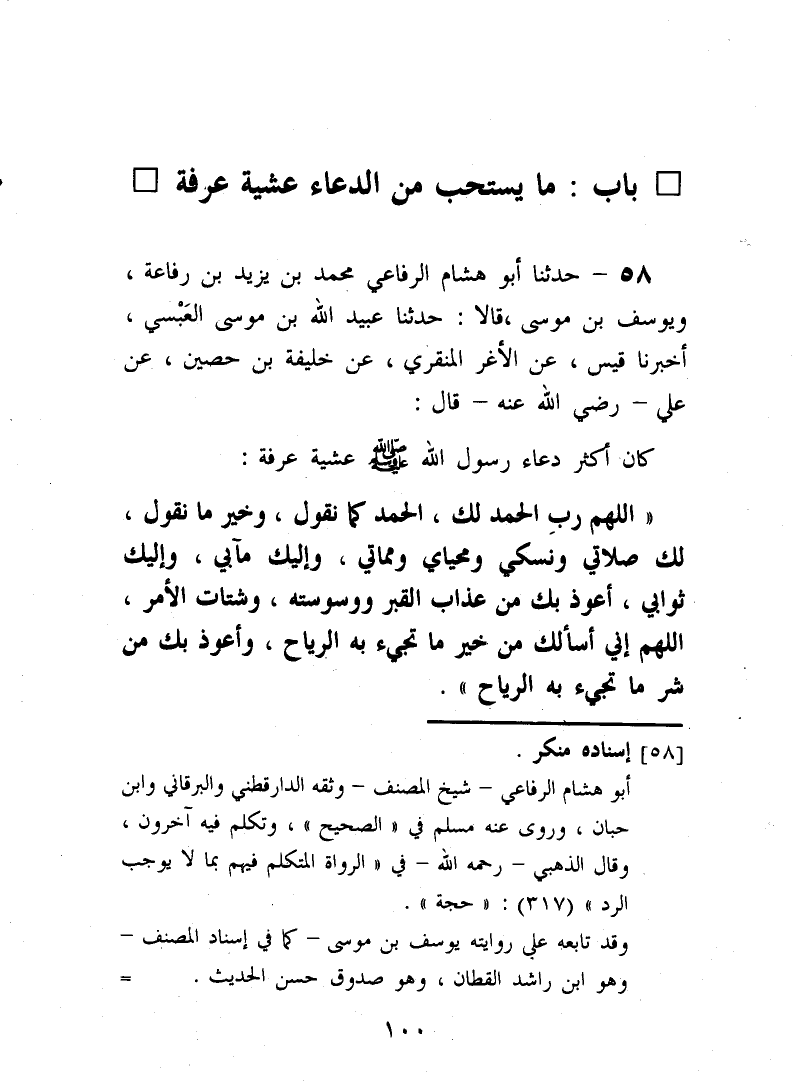 □ باب : ما يستحب من الدعاء عشية عرفة □
٥٨ – حدثنا أبو هشام الرفاعي محمد بن يزيد بن رفاعة ،
ويوسف بن موسى ،قالا : حدثنا عبيد الله بن موسى العَبْسي ،
أخبرنا قيس ، عن الأغر المنقري ، عن خليفة بن حصين ، عن
علي – رضي الله عنه – قال :
كان أكثر دعاء رسول الله ﷺ عشية عرفة :
« اللهم ربِ الحمد لك ، الحمد كما نقول ، وخير ما نقول ،
لك صلاتي ونسكي ومحياي ومماتي ، وإليك مآبي ، وإليك
ثوابي ، أعوذ بك من عذاب القبر ووسوسته ، وشتات الأمر ،
اللهم إني أسألك من خير ما تجيء به الرياح ، وأعوذ بك من
شر ما تجيء به الرياح » .
[٥٨] إسناده منكر .
أبو هشام الرفاعي – شيخ المصنف – وثقه الدارقطني والبرقاني وابن
حبان ، وروى عنه مسلم في « الصحيح » ، وتكلم فيه آخرون ،
وقال الذهبي – رحمه الله – في « الرواة المتكلم فيهم بما لا يوجب
الرد » (٣١٧) : « حجة » .
وقد تابعه على روايته يوسف بن موسى – كما في إسناد المصنف –
وهو ابن راشد القطان ، وهو صدوق حسن الحديث . =
١٠٠